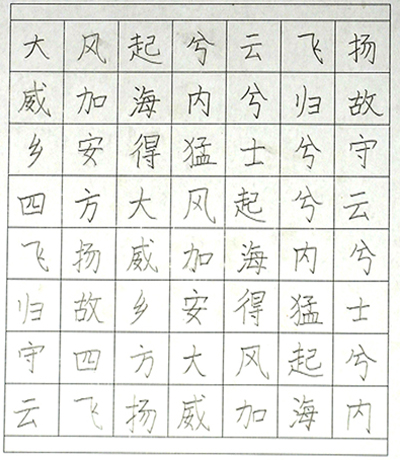 大风起兮云飞扬
威加海内兮归故
乡安得猛士兮守
四方大风起兮云
飞扬威加海内兮
归故乡安得猛士
守四方大风起兮
云飞扬威加海内